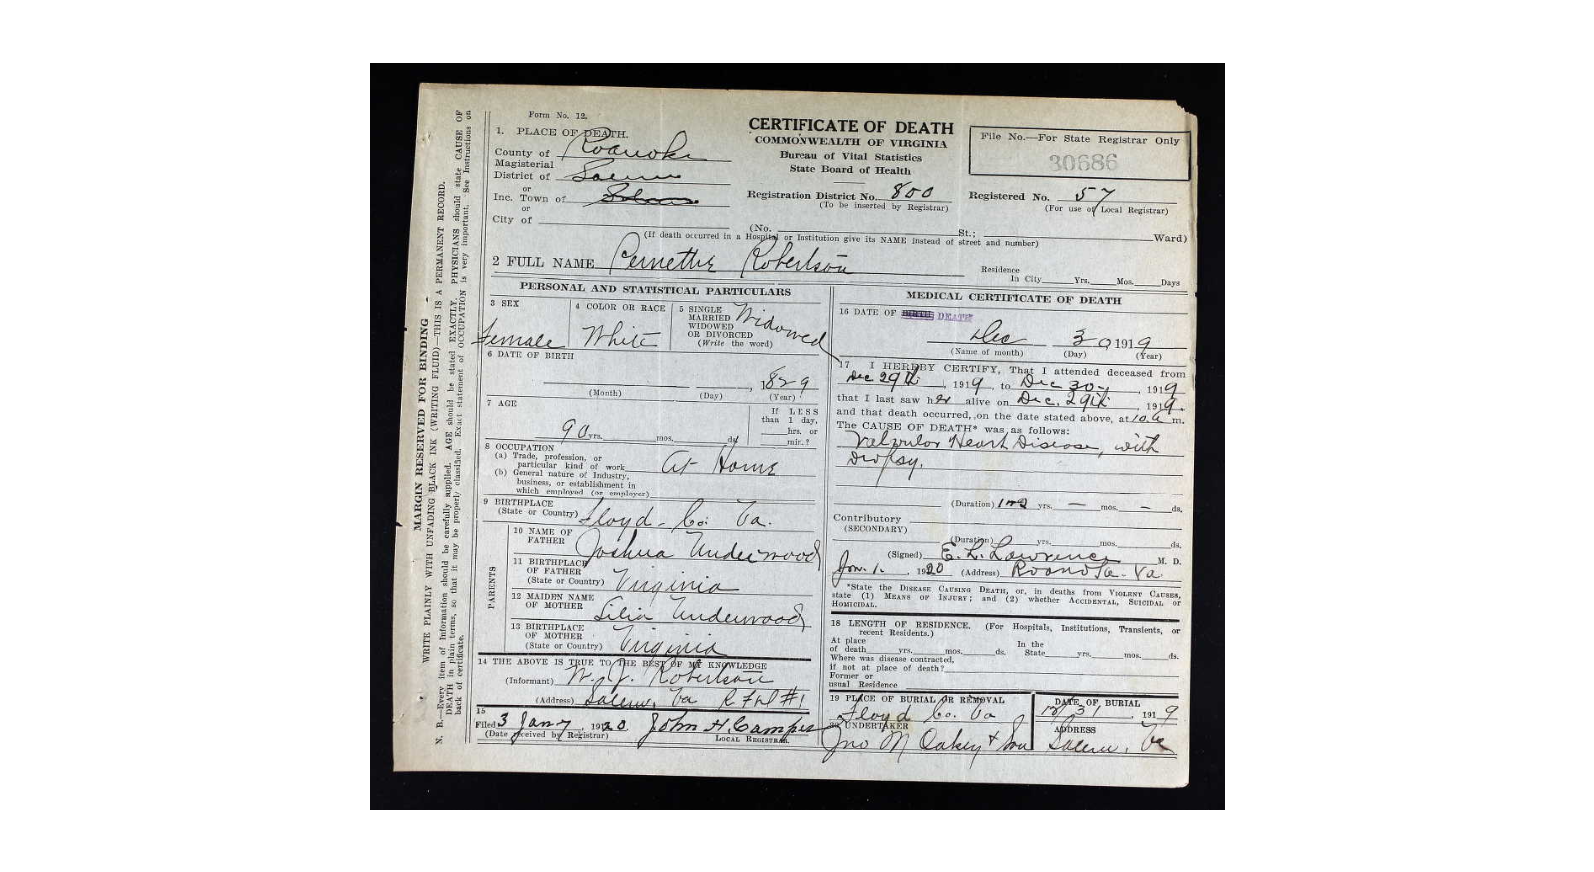 Form No. 12.
1. PLACE OF DEATH.
County of Roanoke
Magisterial
District of Salem
or
Inc. Town of Salem
or
City of
CERTIFICATE OF DEATH
COMMONWEALTH OF VIRGINIA
Bureau of Vital Statistics
State Board of Health
Registration District No. 800
(To be inserted by Registrar)
File No.—For State Registrar Only
30686
Registered No. 57
(For use of Local Registrar)
(No. St.; Ward)
(If death occurred in a Hospital or Institution give its NAME instead of street and number)
2 FULL NAME Robertson
Residence
In City Yrs. Mos. Days
PERSONAL AND STATISTICAL PARTICULARS
3 SEX
Female
4 COLOR OR RACE
White
5 SINGLE
MARRIED
WIDOWED
OR DIVORCED
(Write the word)
Widowed
6 DATE OF BIRTH
, 1829
(Month) (Day) (Year)
7 AGE
90 yrs. mos. ds
If LESS
than 1 day,
hrs. or
min.?
8 OCCUPATION
(a) Trade, profession, or
particular kind of work At Home
(b) General nature of Industry,
business, or establishment in
which employed (or employer)
9 BIRTHPLACE
(State or Country) Floyd Co. Va.
PARENTS
10 NAME OF
FATHER Joshua Underwood
11 BIRTHPLACE
OF FATHER
(State or Country) Virginia
12 MAIDEN NAME
OF MOTHER Lilia Underwood
13 BIRTHPLACE
OF MOTHER
(State or Country) Virginia
14 THE ABOVE IS TRUE TO THE BEST OF MY KNOWLEDGE
(Informant) W. J. Robertson
(Address) Salem, Va R F D #1
15
Filed 3 Jany, 1920 John H. Camper
(Date received by Registrar) LOCAL REGISTRAR.
MEDICAL CERTIFICATE OF DEATH
16 DATE OF BIRTH DEATH
Dec 30 1919
(Name of month) (Day) (Year)
17 I HEREBY CERTIFY, That I attended deceased from
Dec 29th, 1919, to Dec 30, 1919
that I last saw her alive on Dec. 29th, 1919.
and that death occurred, on the date stated above, at 10 a m.
The CAUSE OF DEATH* was as follows:
Valvular Heart Disease, with
Dropsy.
(Duration) yrs. — mos. — ds.
Contributory
(SECONDARY)
(Duration) yrs. mos. ds.
(Signed) E. L. Lawrence M. D.
Jan. 1. , 1920 (Address) Roanoke Va.
*State the DISEASE CAUSING DEATH, or, in deaths from VIOLENT CAUSES,
state (1) MEANS OF INJURY; and (2) whether ACCIDENTAL, SUICIDAL or
HOMICIDAL.
18 LENGTH OF RESIDENCE. (For Hospitals, Institutions, Transients, or
recent Residents.)
At place In the
of death yrs. mos. ds. State yrs. mos. ds.
Where was disease contracted,
if not at place of death?
Former or
usual Residence
19 PLACE OF BURIAL OR REMOVAL
Floyd Co. Va
DATE OF BURIAL
12/31 , 1919
20 UNDERTAKER
Jno M Oakey & Son
ADDRESS
Salem, Va
MARGIN RESERVED FOR BINDING
WRITE PLAINLY WITH UNFADING BLACK INK (WRITING FLUID)—THIS IS A PERMANENT RECORD.
N. B.—Every item of information should be carefully supplied. AGE should be stated EXACTLY. PHYSICIANS should state CAUSE OF
DEATH in plain terms, so that it may be properly classified. Exact statement of OCCUPATION is very important. See Instructions on
back of certificate.